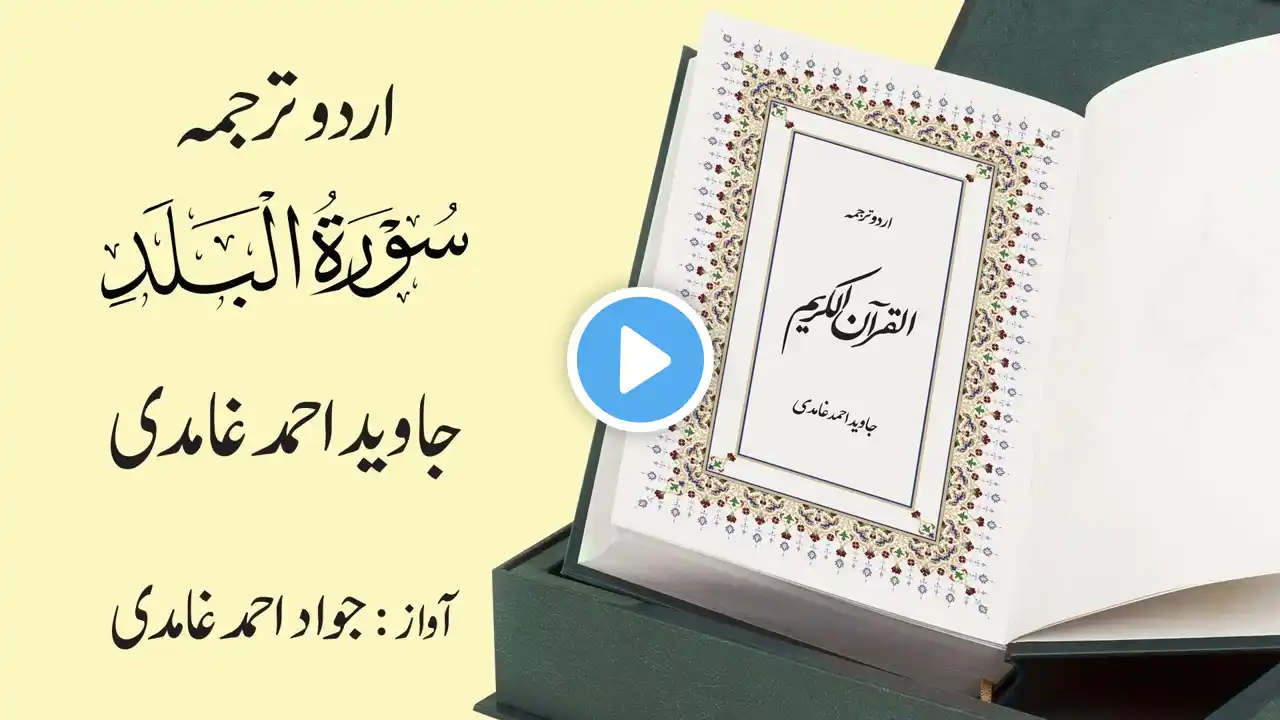 اردو ترجمہ
سُوْرَةُ الْبَلَدِ
جاوید احمد غامدی
آواز : جواد احمد غامدی
اردو ترجمہ
القرآن الکریم
جاوید احمد غامدی